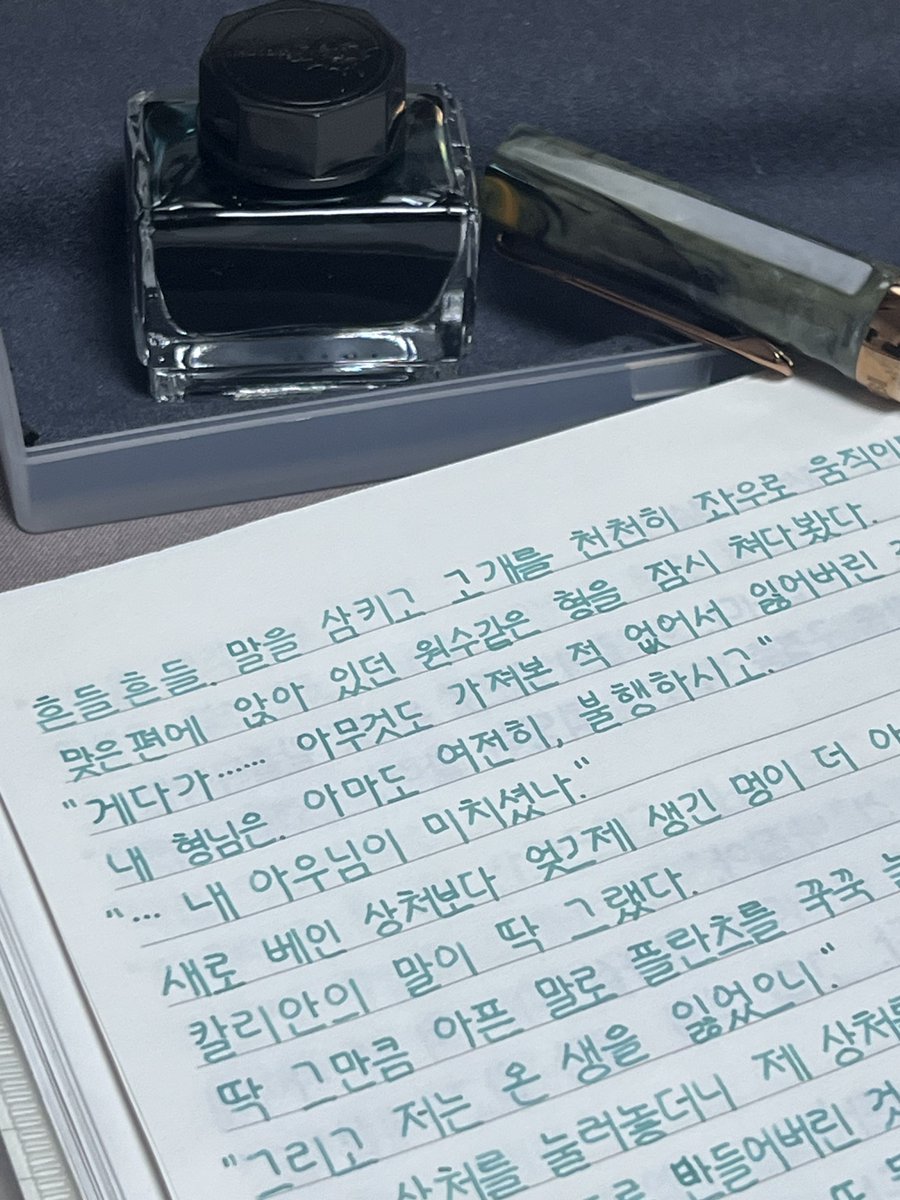 흔들흔들. 말을 삼키고 고개를 천천히 좌우로
맞은편에 앉아 있던 원수같은 형을 잠시 쳐다봤다.
"게다가…… 아무것도 가져본 적 없어서 잃어버린
내 형님은. 아마도 여전히, 불행하시고."
"… 내 아우님이 미치셨나."
새로 베인 상처보다 엊그제 생긴 멍이 더
칼리안의 말이 딱 그랬다.
딱 그만큼 아픈 말로 플란츠를 꾹꾹
"그리고 저는 온 생을 잃었으니."
상처를 눌러놓더니 제 상처를
만들어버린 것